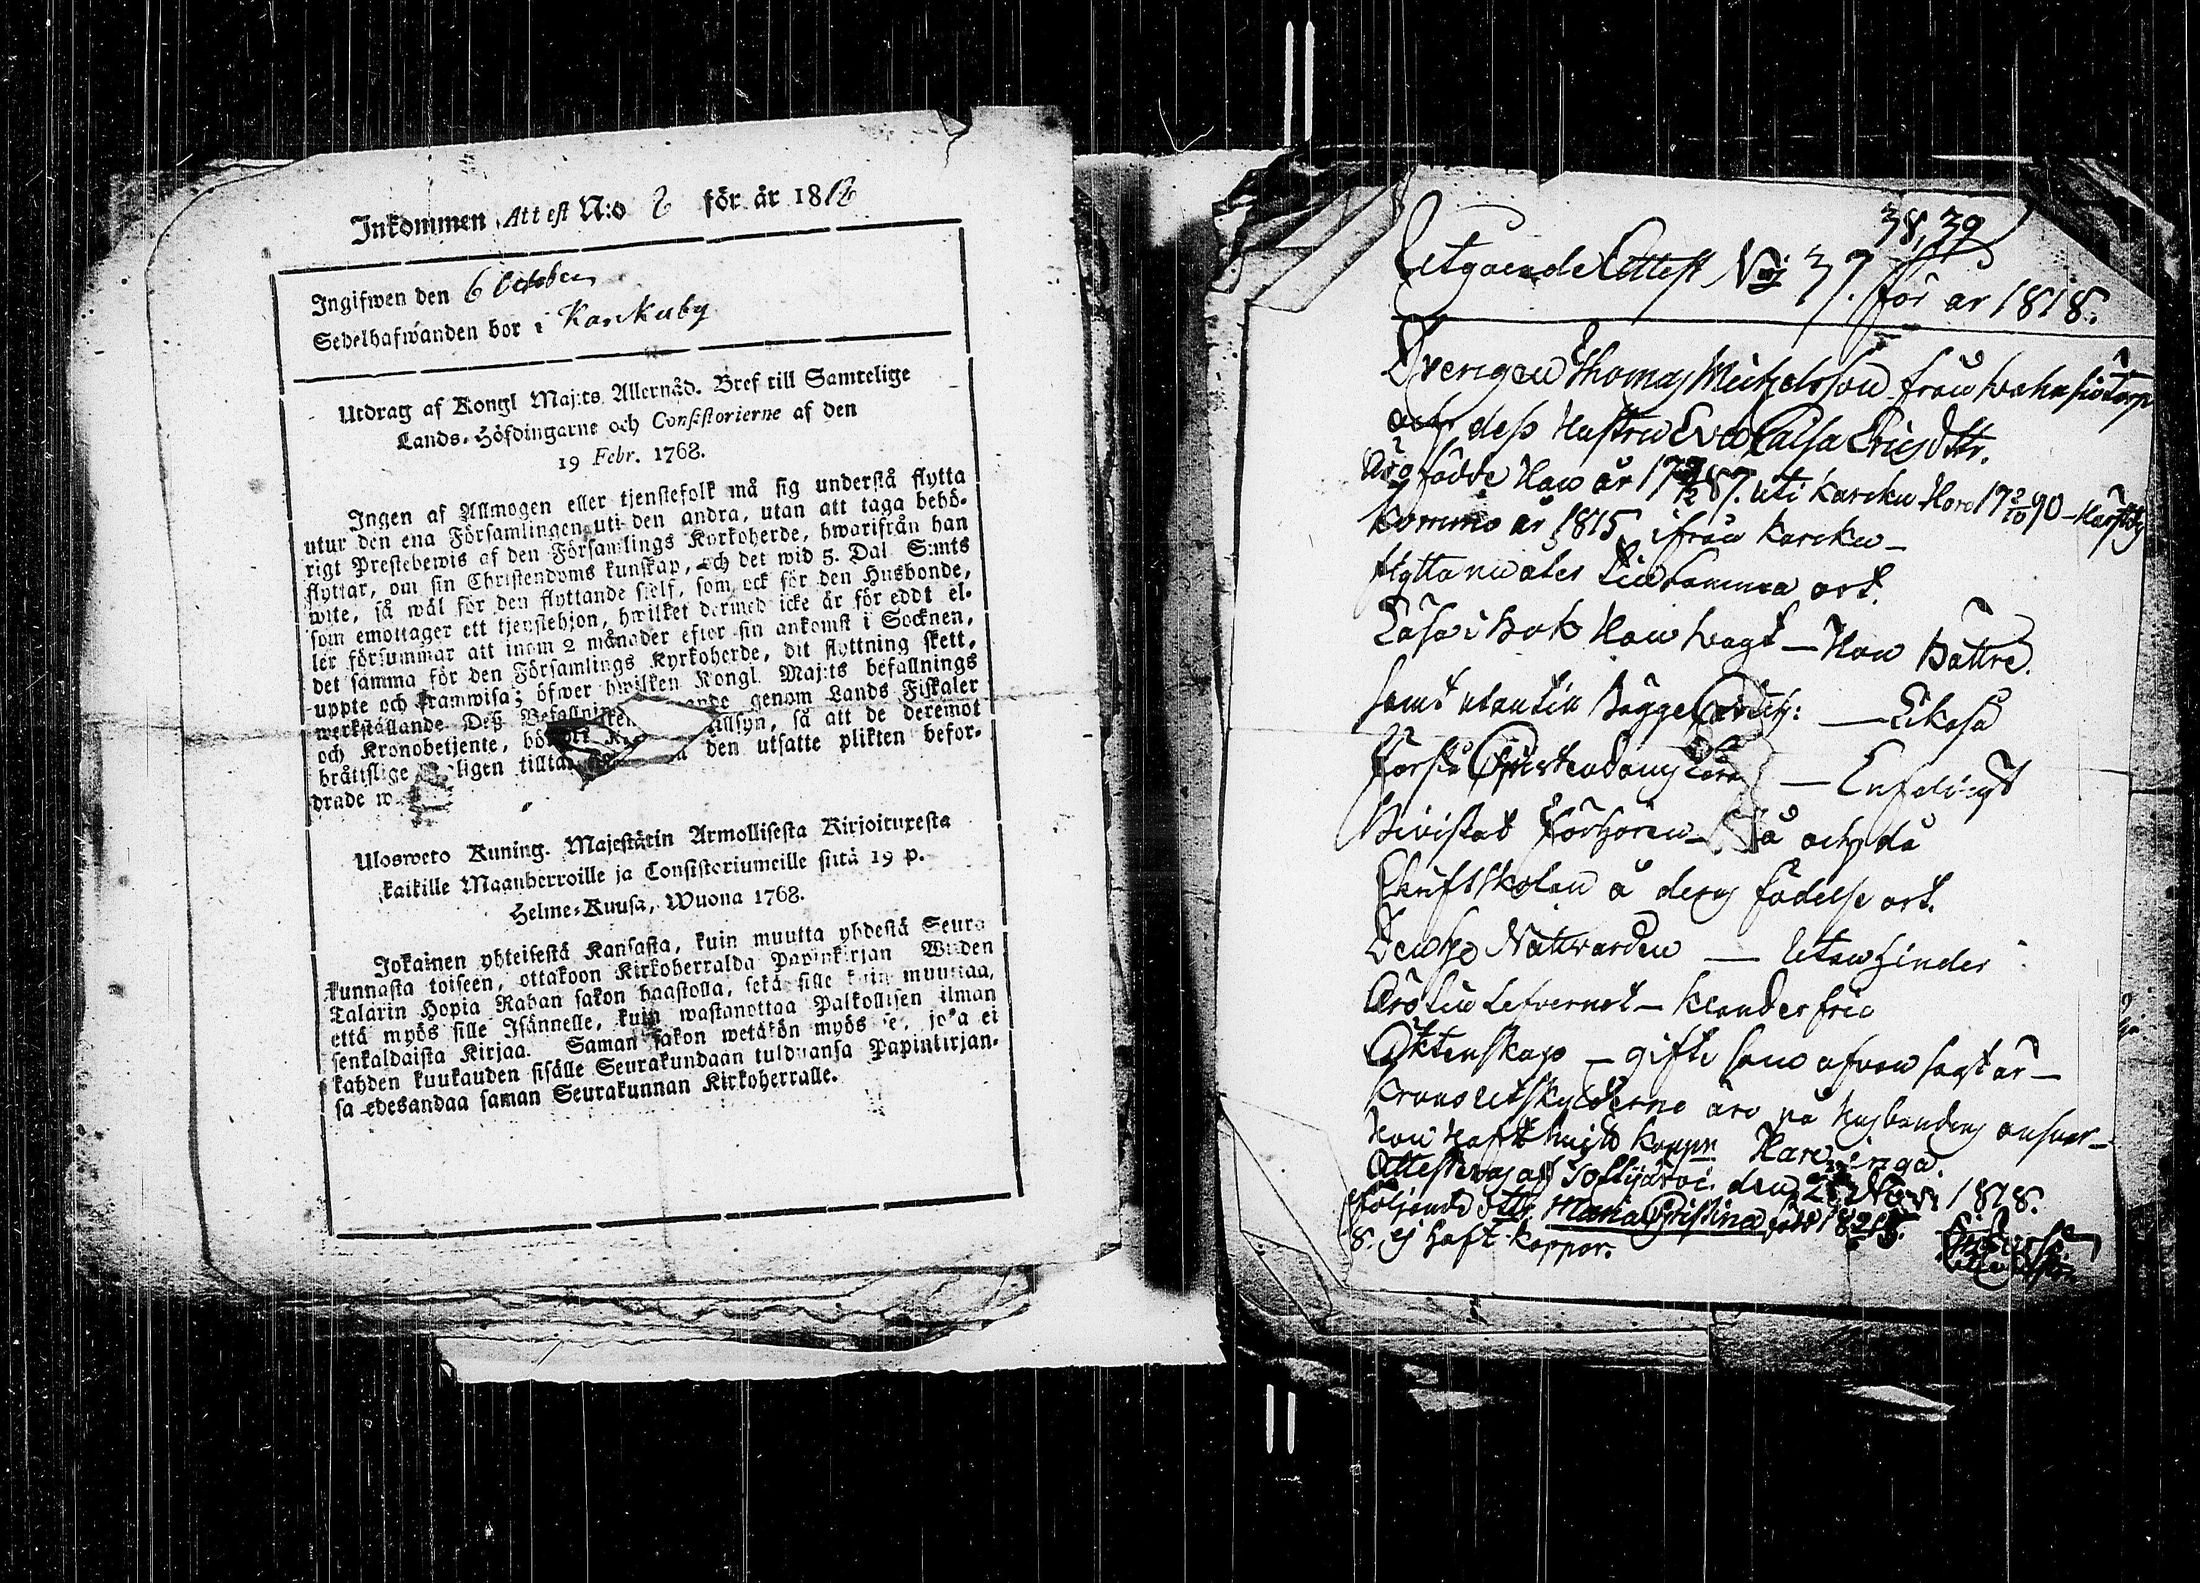 Inkommen Attest N:o 2 för år 1818
Ingifwen den 6 October
Sedelhafwanden bor i Karkuby
Utdrag af Kongl Maj:ts Allernåd. Bref till Samtelige
Lands-Höfdingarne och Consistorierne af den
19 Febr. 1768.
Ingen af Allmogen eller tjenstefolk må sig understå flytta
utur den ena Församlingen uti den andra, utan att taga behö-
rigt Prestebewis af den Församlings Kyrkoherde, hwarifrån han
flyttar, om sin Christendoms kunskap, och det wid 5. Dal. S:mts
wite, så wäl för den flyttande sjelf, som ock för den Husbonde,
som emottager ett tjenstehjon, hwilket dermed icke är för eddt el-
ler försummar att inom 2 månader efter sin ankomst i Socknen,
det samma för den Församlings Kyrkoherde, dit flyttning skett,
uppte och framwisa; öfwer hwilken Kongl. Maj:ts befallnings
werkställande Deß genom Lands Fiskaler
och Kronobetjente, så att de deremot
bråttslige den utsatte plikten befor-
drade
Ulosweto Kuning. Majestätin Armollisesta Kirjoituxesta
kaikille Maanherroille ja Consistoriumeille siitä 19 p.
Helme-Kuusa, Wuona 1768.
Jokainen yhteisestä Kansasta, kuin muutta yhdestä Seura
kunnasta toiseen, ottakoon Kirkoherralda Papinkirjan Wijden
Talarin Hopia Rahan sakon haastolla, sekä sille kuin muuttaa,
että myös sille Isännelle, kuin wastanottaa Palkollisen ilman
senkaldaista Kirjaa. Saman sakon wetäkön myös se, joka ei
kahden kuukauden sisälle Seurakundaan tulduansa Papinkirjan-
sa edesandaa saman Seurakunnan Kirkoherralle.
38, 39
Utgående Attest No 37. för år 1818.
Drengen Thomas Michelsson från torp
och dess Hustru Eva Caisa Ericsdttr.
Äro födde Han år 1787. uti Karcku Hon 1790
Kommo år 1815 ifrån Karcku
flytta nu åter till samma ort.
Läsa i Bok Han swagt — Hon Bättre.
samt utantill Bägge — Likaså
Förstå Christendoms Lära — Enfaldigt
Bivistat Förhören Då och då
Skriftskolan å deras födelse ort.
Den H. Nattvarden — Utan hinder
Äro till Lefvernet — Klanderfria
Äktenskap — gifte som ofvan sagt är —
Krono Utskylderne äro på Husbondens ansvar —
Han Haft Koppor. Hare inga.
Attesteras af Tottijärvi den 28 Nov. 1818.
Följande dttr Maria Christina född 18
8. ej haft Koppor.